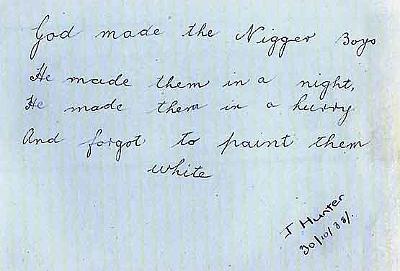 God made the Nigger Boys
He made them in a night,
He made them in a hurry
And forgot to paint them
white
J Hunter
30/10/33/.